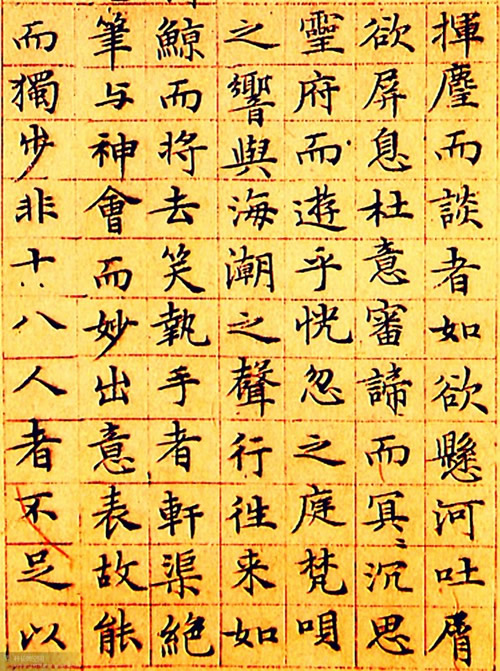 揮麈而談者如欲懸河吐屑
欲屏息杜意審諦而冥〻沉思
靈府而遊乎恍忽之庭梵唄
之響與海潮之聲行徃来如
鯨而将去笑執手者軒渠絕
筆与神會而妙出意表故能
而獨步非十八人者不足以